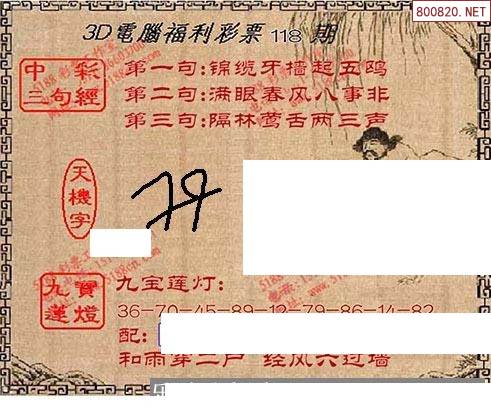 800820.NET
3D電腦福利彩票118期
中彩
三句經
第一句:锦缆牙樯起五鸥
第二句:满眼春风八事非
第三句:隔林莺舌两三声
天機字
九寶
蓮燈
九宝莲灯:
36-70-45-89-12-79-86-14-82
配:
和雨穿二户 经风六过墙